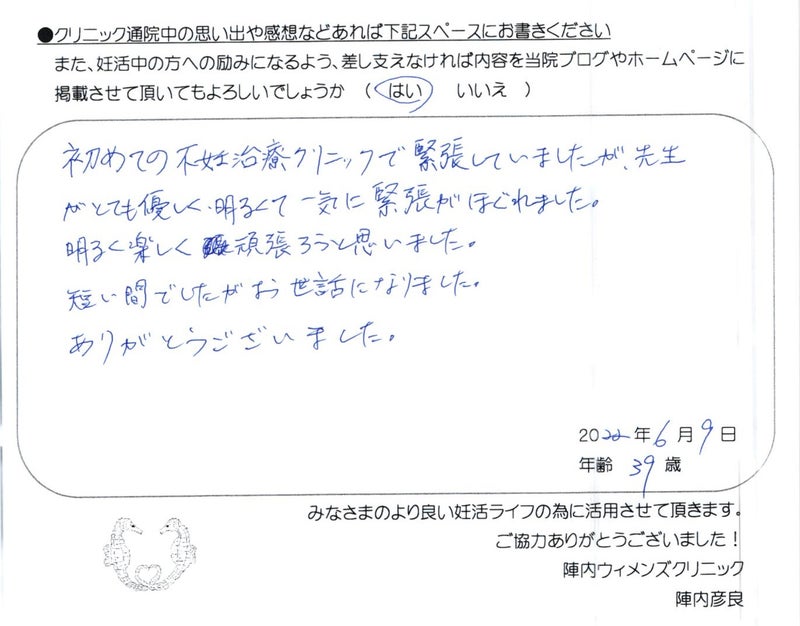 ●クリニック通院中の思い出や感想などあれば下記スペースにお書きください
また、妊活中の方への励みになるよう、差し支えなければ内容を当院ブログやホームページに
掲載させて頂いてもよろしいでしょうか （ はい いいえ ）
初めての不妊治療クリニックで緊張していましたが、先生
がとても優しく、明るくて一気に緊張がほぐれました。
明るく楽しく頑張ろうと思いました。
短い間でしたがお世話になりました。
ありがとうございました。
2022年6月9日
年齢 39歳
みなさまのより良い妊活ライフの為に活用させて頂きます。
ご協力ありがとうございました！
陣内ウィメンズクリニック
陣内彦良